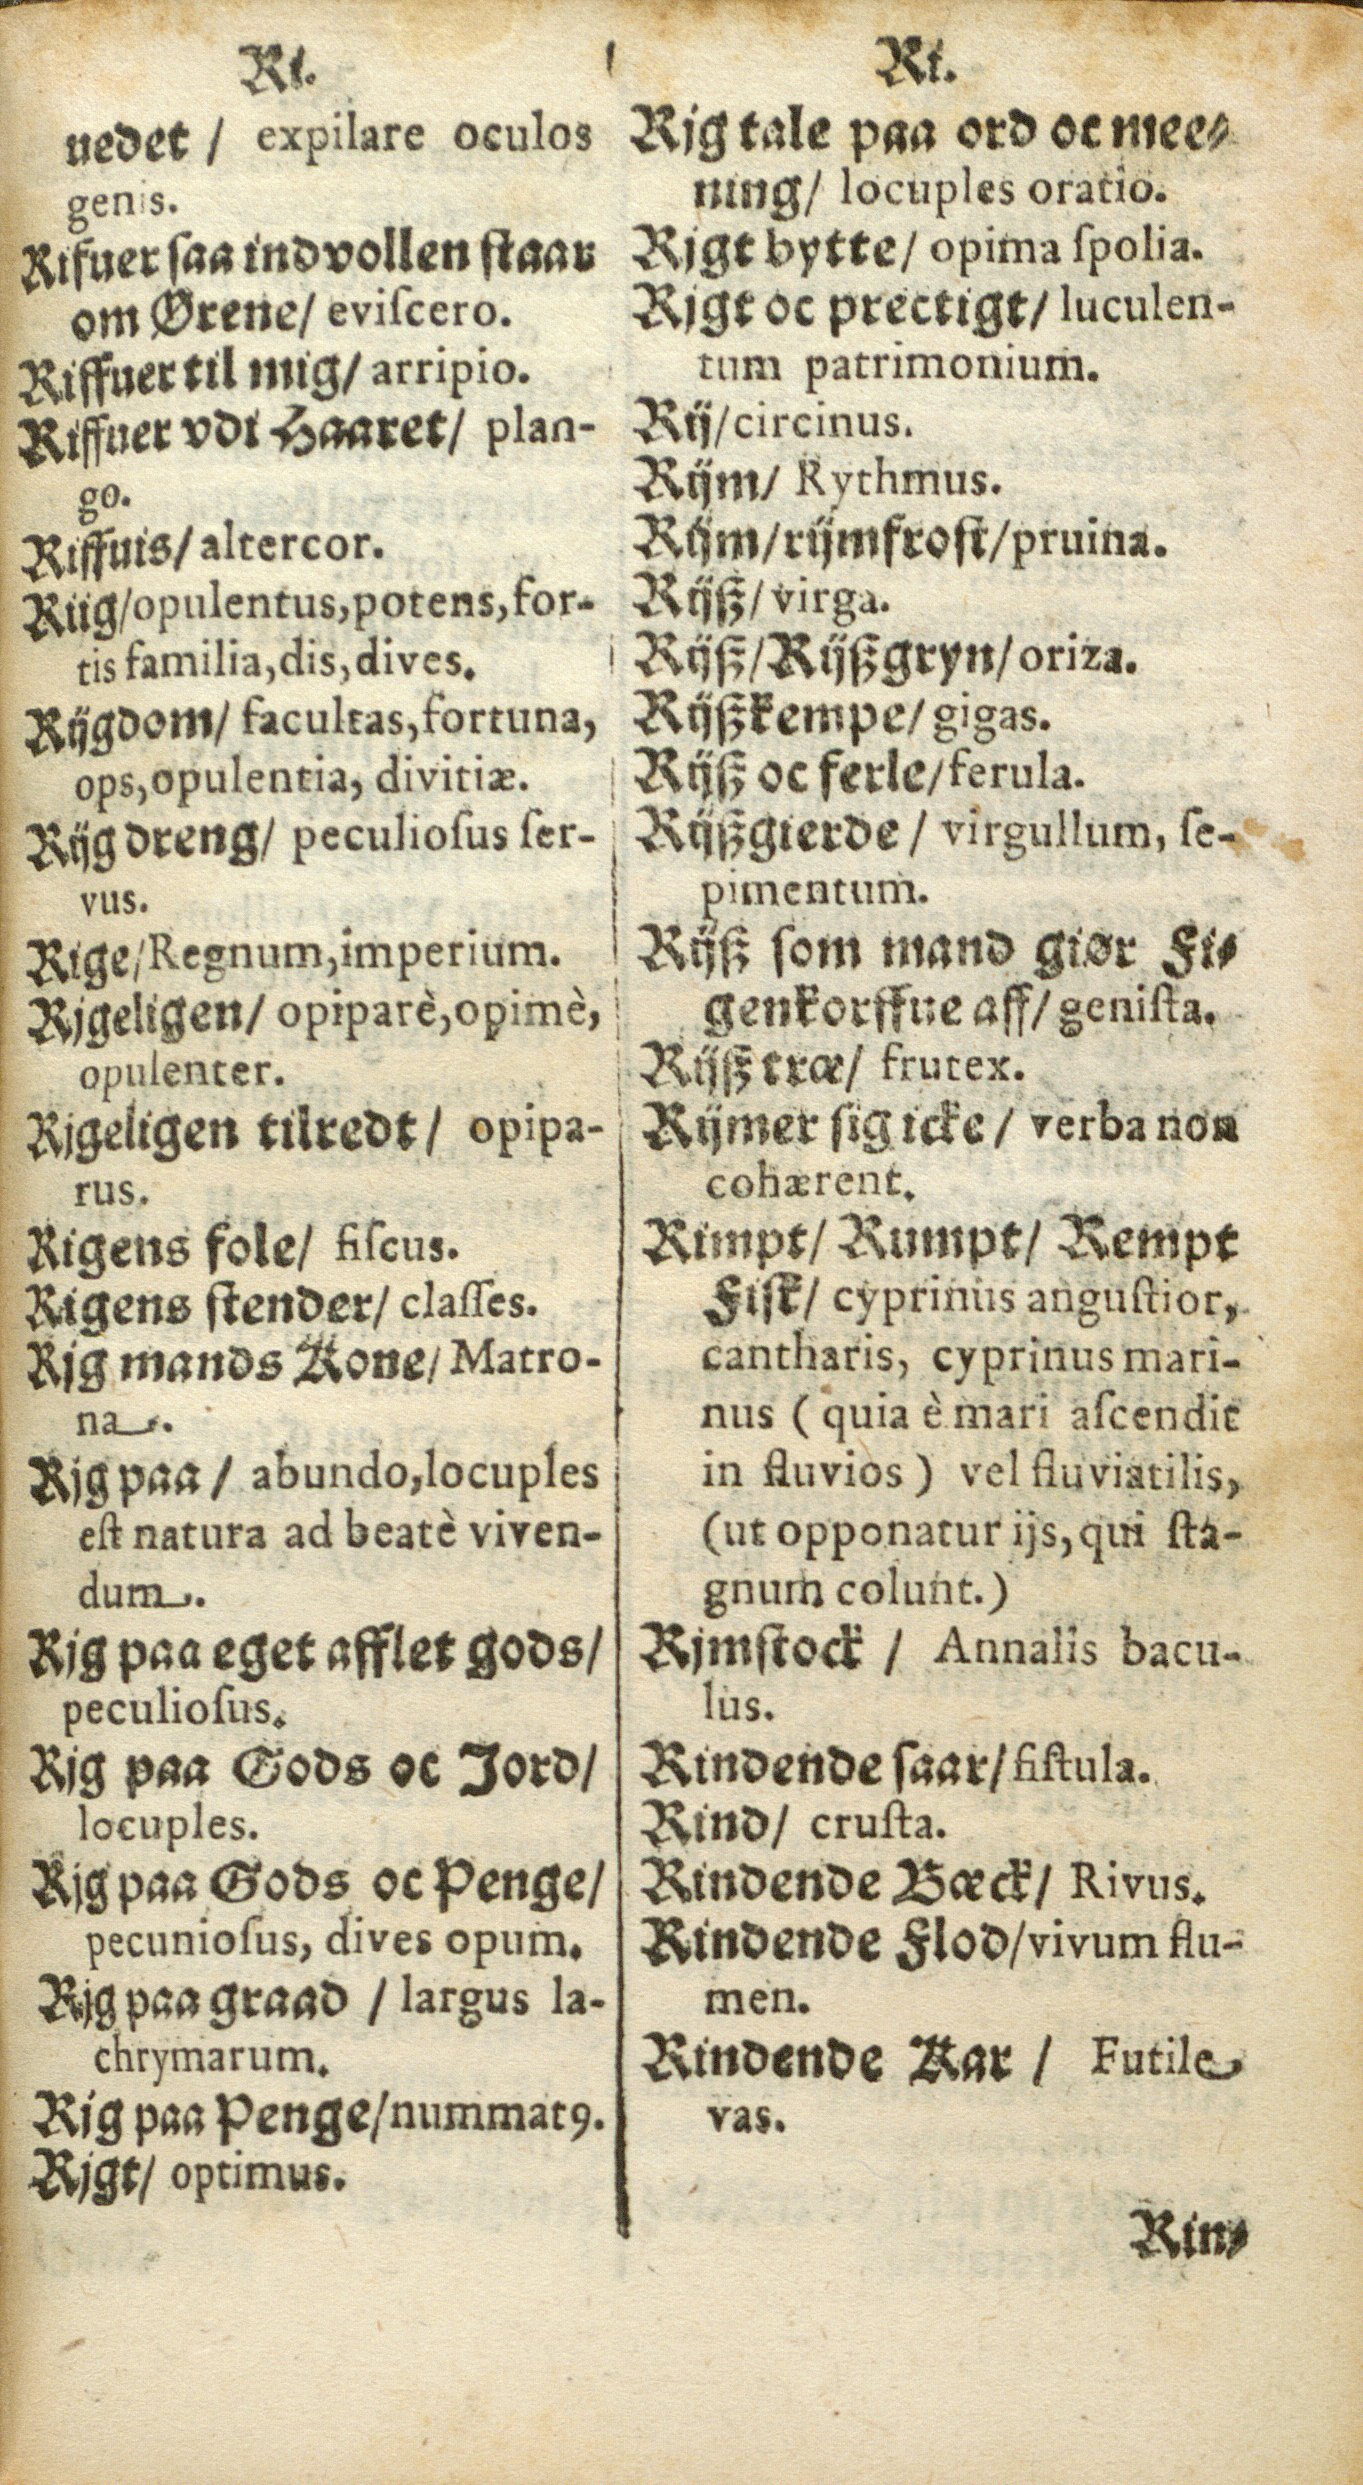 Ri.
uedet / expilare oculos
genis.
Rifuer ſaa indvollen ſtaar
om Ørene/ eviſcero.
Riffuer til mig/ arripio.
Riffuer vdi Haaret/ plan-
go.
Riffuis/ altercor.
Riig/opulentus, potens, for-
tis familia, dis, dives.
Rijgdom/ facultas, fortuna,
ops, opulentia, divitiæ.
Rijg dreng/ peculioſus ſer-
vus.
Rige/Regnum, imperium.
Rjgeligen/ opiparè, opimè,
opulenter.
Rjgeligen tilredt/ opipa-
rus.
Rigens fole/ fiſcus.
Rigens ſtender/ claſſes.
Rjg mands Kone/ Matro-
na.
Rjg paa / abundo, locuples
eſt natura ad beatè viven-
dum.
Rjg paa eget afflet gods/
peculioſus.
Rjg paa Gods oc Jord/
locuples.
Rjg paa Gods oc Penge/
pecunioſus, dives opum.
Rjg paa graad / largus la-
chrymarum.
Rjg paa Penge/nummatꝰ.
Rjgt/ optimus.
Ri.
Rjg tale paa ord oc mee-
ning/ locuples oratio.
Rjgt bytte/ opima ſpolia.
Rjgt oc prectigt/ luculen-
tum patrimonium.
Rij/circinus.
Rijm/ Rythmus.
Rijm/rijmfroſt/pruina.
Rijß/ virga.
Rijß/Rijßgryn/oriza.
Rijßkempe/ gigas.
Rijß oc ferle/ferula.
Rijßgierde / virgullum, ſe-
pimentum.
Rijß ſom mand giør Fi-
genkorffue aff/ geniſta.
Rijß træ/ frutex.
Rijmer ſig icke / verba non
cohærent.
Rimpt/ Rumpt/ Rempt
Fiſk/ cyprinus anguſtior,
cantharis, cyprinus mari-
nus ( quia è mari aſcendit
in fluvios ) vel fluviatilis,
(ut opponatur ijs, qui ſta-
gnum colunt.)
Rjmſtock / Annalis bacu-
lus.
Rindende ſaar/ fiſtula.
Rind/ cruſta.
Rindende Bæck/ Rivus.
Rindende Flod/vivum flu-
men.
Rindende Kar / Futile
vas.
Rin-